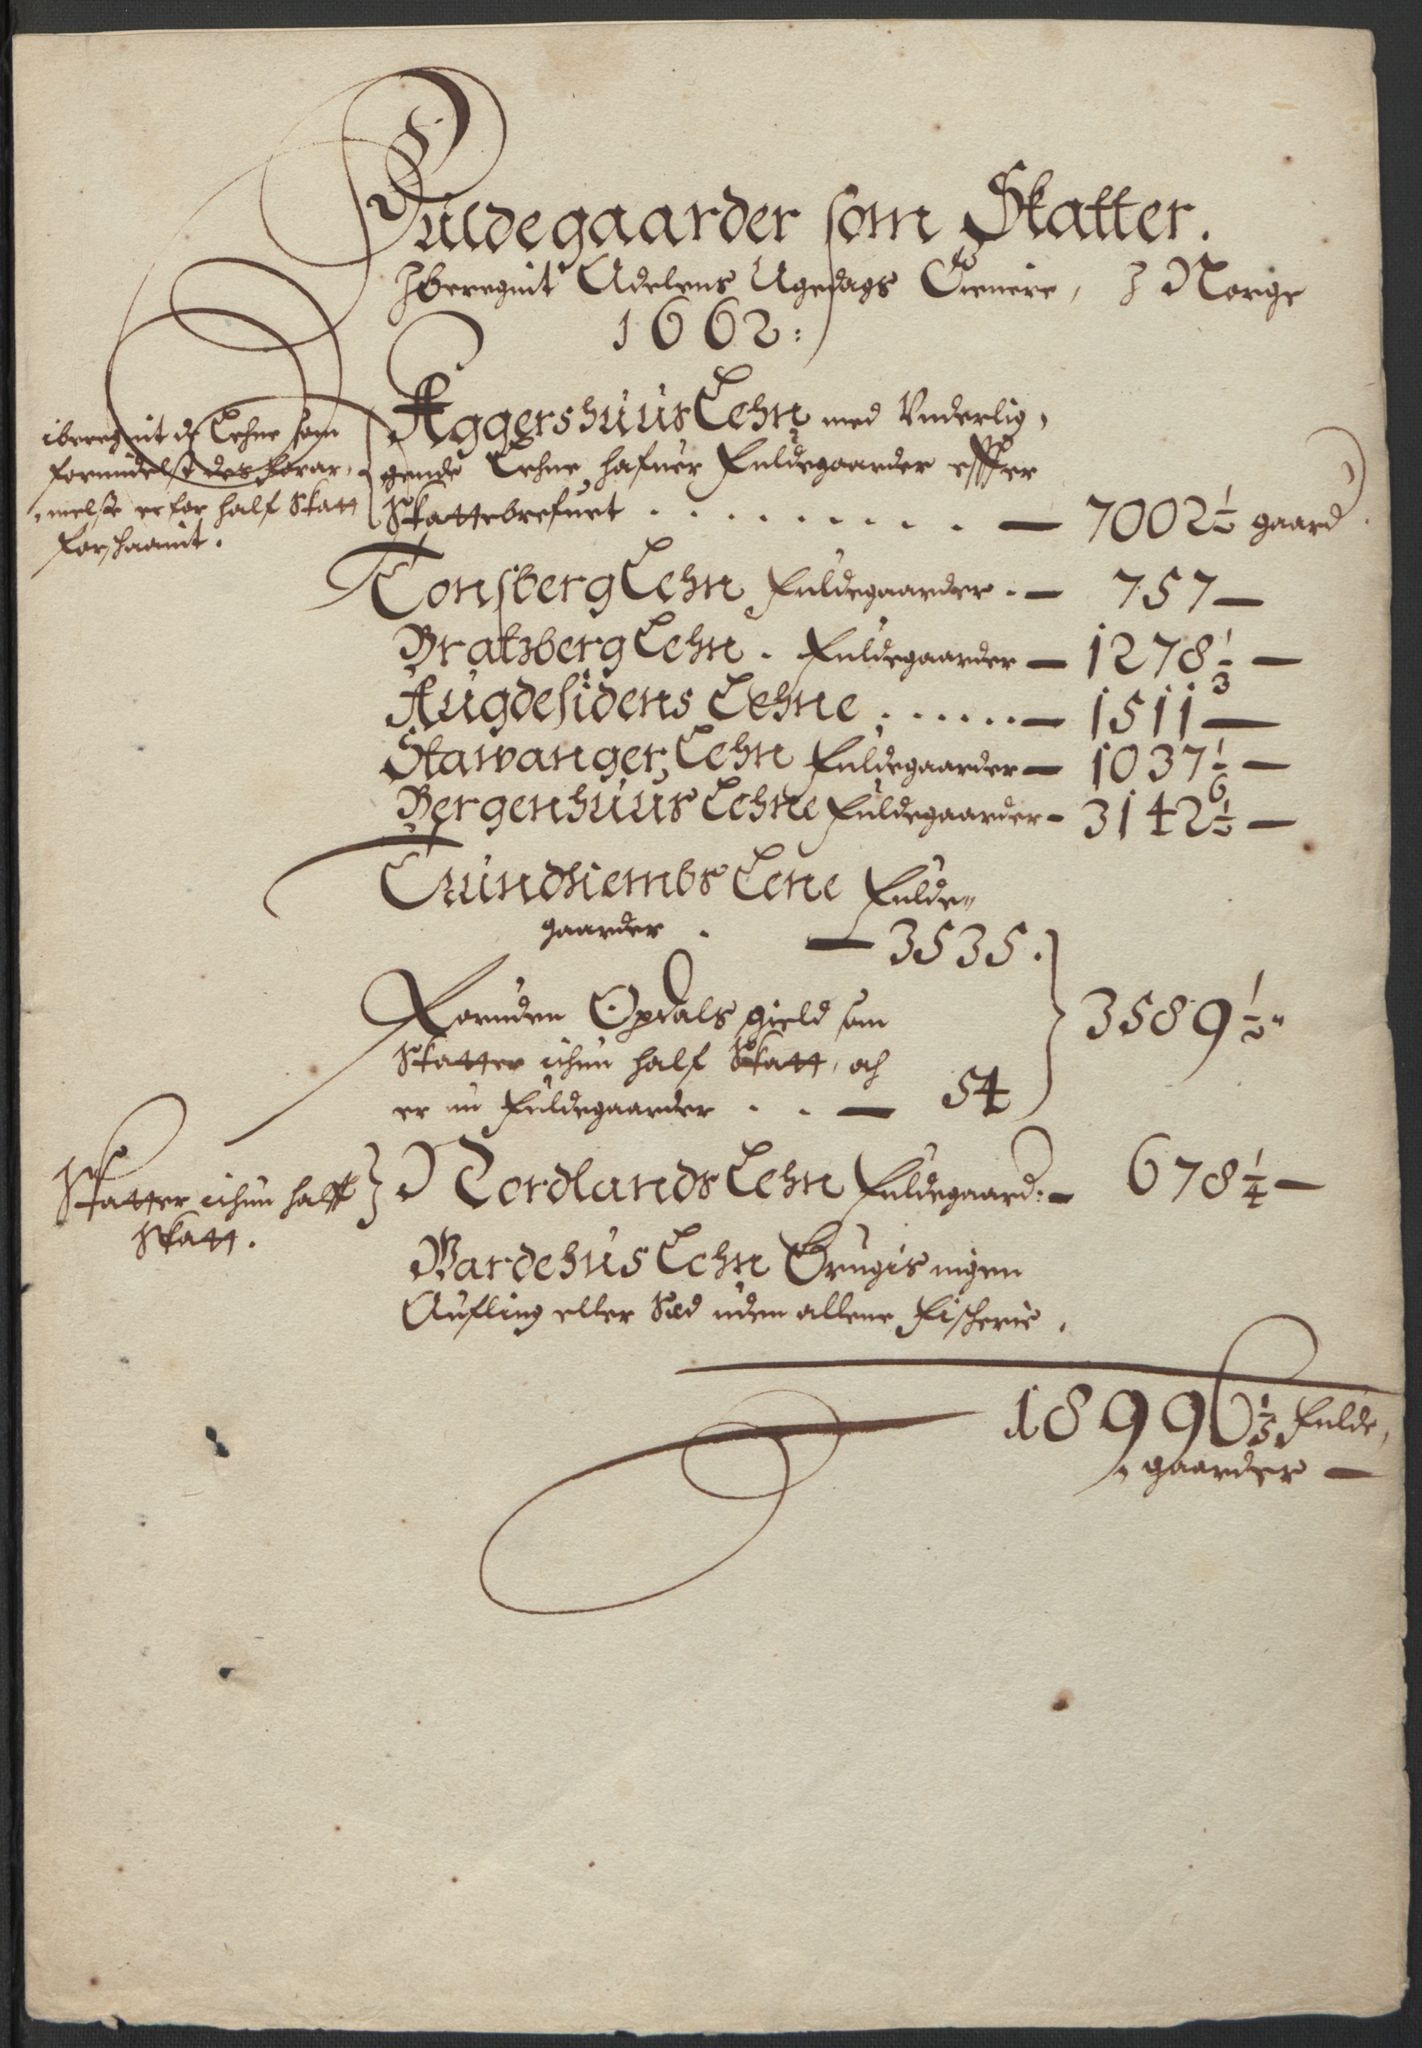 Fuldegaarder som Skatter.
Iberegnit Adelens Ugedags Tienere, I Norge
1662:
Aggershuus Lehn med Vnderlig,
gende Lehne hafuer Fuldegaarder effter
Skattebrefuet . . . . . . . . . — 7002½ gaard
iberegnit de Lehne som
formedelst des forar,
melse er for half Skatt
forschaanit.
Tonsberg Lehn Fuldegaarder . — 757 —
Bratzberg Lehn . Fuldegaarder — 1278 1/3 —
Augdesidens Lehne . . . . . . — 1511 —
Stawanger Lehn Fuldegaarder — 1037 1/6 —
Bergenhuus Lehne Fuldegaarder - 3142½ —
Trundhiembs Lene Fulde-
gaarder . — 3535.
Foruden Opdals gield som
Skatter ichun half Skatt, och
er nu Fuldegaarder . . — 54
3589½
Skatter ichun halff
Skatt.
Nordlands Lehn Fuldegaard: — 678¼ —
Wardehus Lehn Brugis ingen
Aufling eller Sæd uden allene Fischerie.
18996 1/3 Fulde,
gaarder —